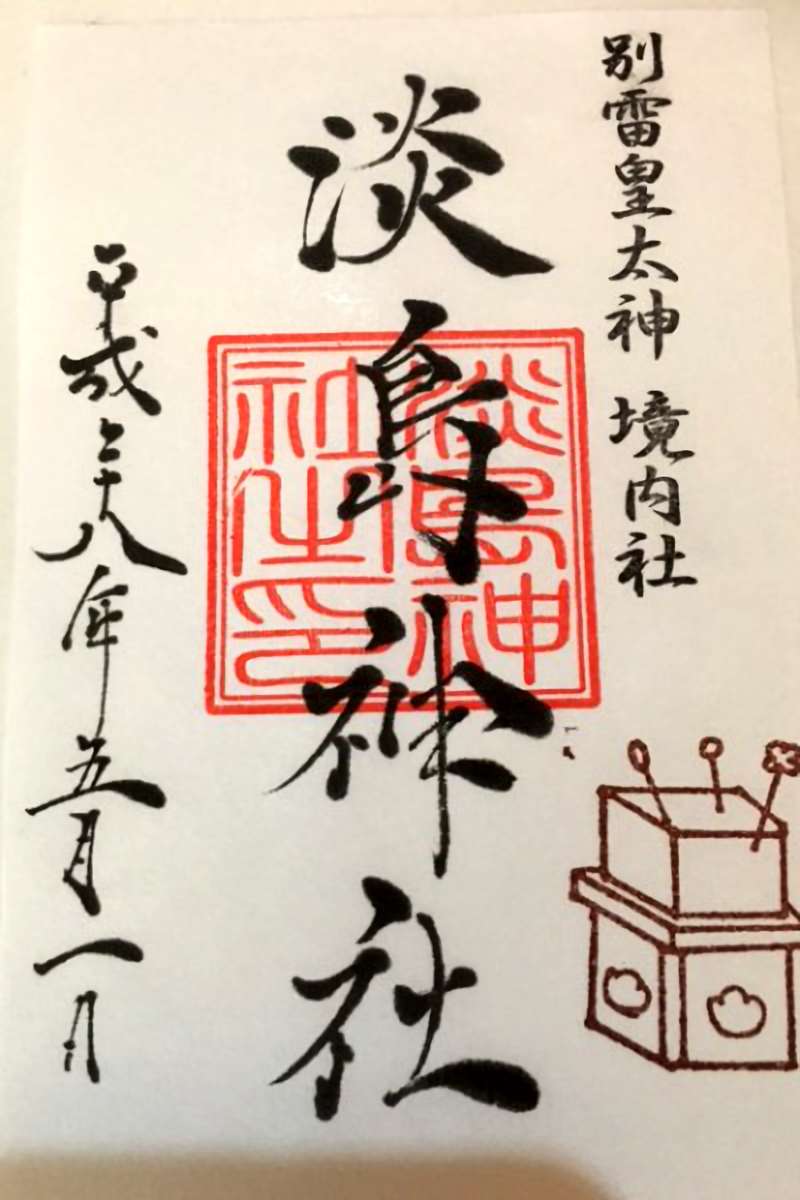 別雷皇太神 境内社
淡島神社
淡島神
社之印
平成二十八年五月一日